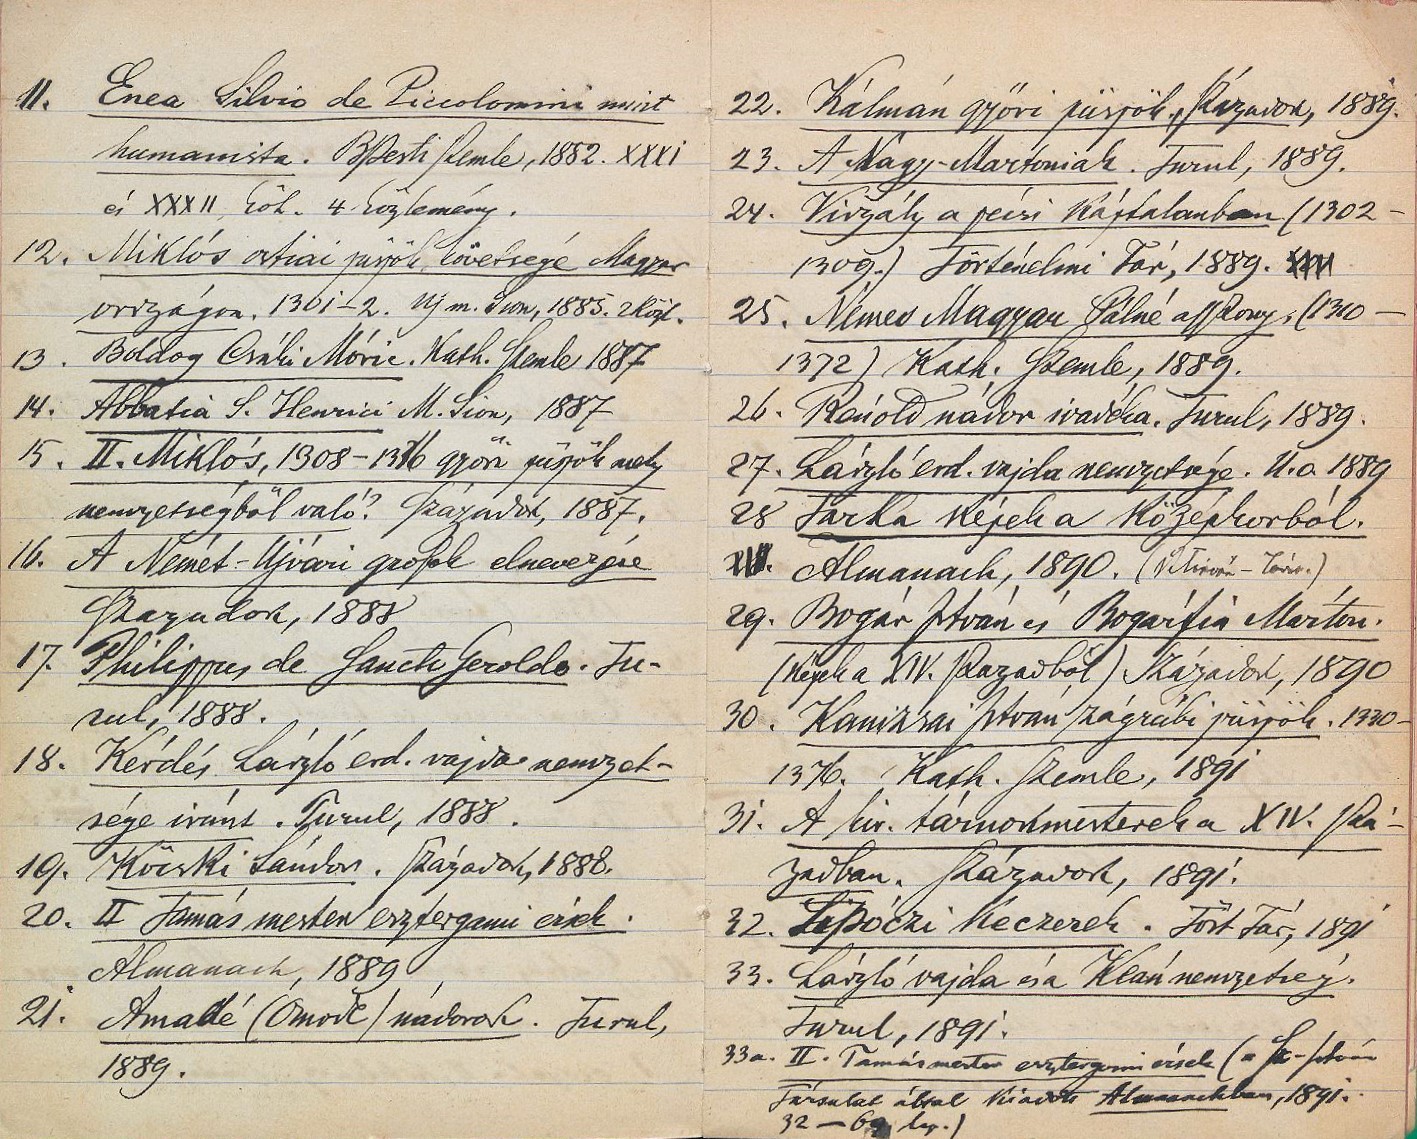 11. Enea Silvio de Piccolomini mint
humanista. BPesti Szemle, 1882. XXXI
és XXXII köt. 4 közlemény.
12. Miklós ostiai püspök követsége Magyar
országon. 1301–2. Uj m. Sion, 1885. 2 közl.
13. Boldog Csáki Móric. Kath. Szemle 1887
14. Abbatia S. Henrici M. Sion, 1887
15. II. Miklós, 1308–1316 győri püspök mely
nemzetségből való? Századok, 1887.
16. A Német-Ujvári grófok elnevezése
Századok, 1888
17. Philippus de Sancto Geroldo. Tu-
rul, 1888.
18. Kérdés László erd. vajda nemzet-
sége iránt. Turul, 1888.
19. Köcski Sándor. Századok, 1888.
20. II Tamás mester esztergami érsek.
Almanach, 1889
21. Amadé (Omode) nádorok. Turul,
1889.
22. Kálmán győri püspök. Századok, 1889.
23. A Nagy-Martoniak. Turul, 1889.
24. Viszály a pécsi káptalanban (1302–
1309.) Történelmi Tár, 1889.
25. Nemes Magyar Pálné asszony. (1310–
1372) Kath. Szemle, 1889.
26. Renold nádor ivadéka. Turul, 1889.
27. László erd. vajda nemzetsége. U. o. 1889
28 Tarka képek a középkorból.
Almanach, 1890.
29. Bogár István és Bogárfia Márton.
(Képek a XIV. századból) Századok, 1890
30. Kanizsai István zágrábi püspök. 1330–
1376. Kath. Szemle, 1891
31. A kir. tárnokmesterek a XIV. szá-
zadban. Századok, 1891.
32. Lipóczi Keczerek. Tört Tár, 1891
33. László vajda és a Kán nemzetség.
Turul, 1891.
33a. II. Tamás mester esztergomi érsek (a Sz-István
Társulat által kiadott Almanachban, 1891.
32–69 lap.)